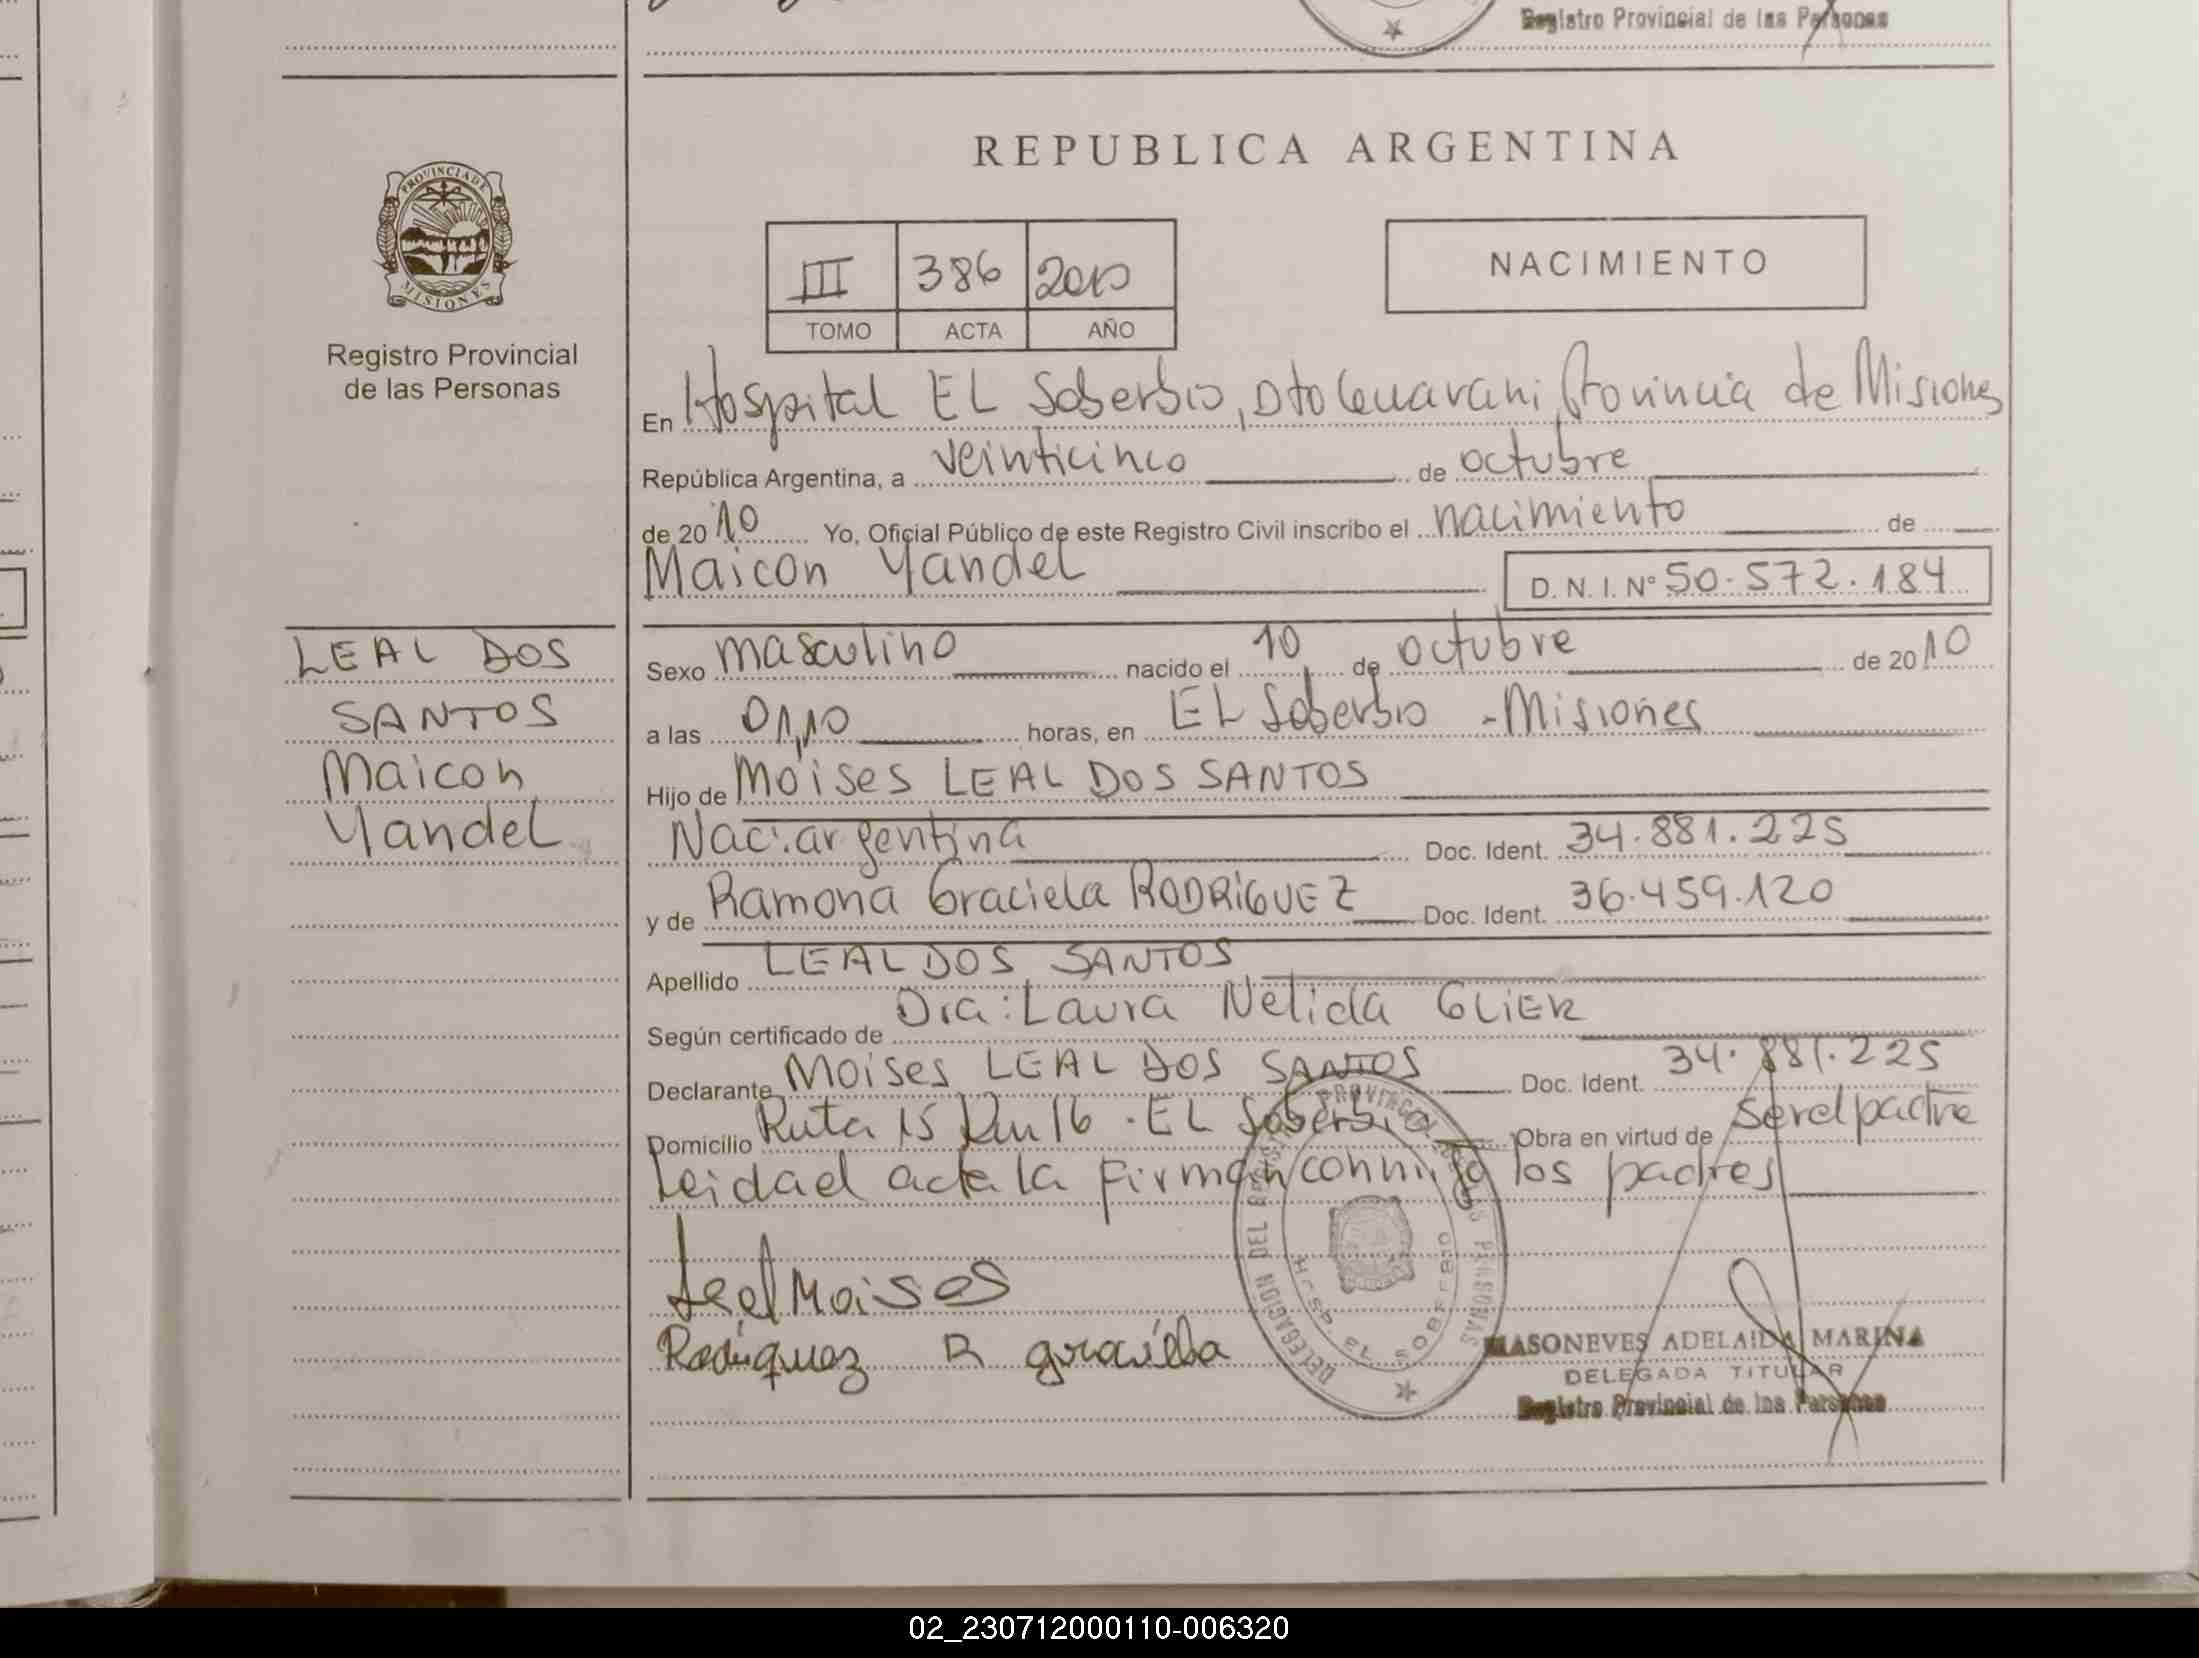 Registro Provincial de las Personas
REPUBLICA ARGENTINA
PROVINCIA DE
MISIONES
Registro Provincial
de las Personas
III 386 2010
TOMO ACTA AÑO
NACIMIENTO
En Hospital EL Soberbio, Dto Guarani Provincia de Misiones
República Argentina, a veinticinco de octubre
de 2010 Yo, Oficial Público de este Registro Civil inscribo el nacimiento de
Maicon Yandel D. N. I. Nº 50.572.184
LEAL DOS
SANTOS
Maicon
Yandel
Sexo masculino nacido el 10 de octubre de 2010
a las 01,10 horas, en EL Soberbio - Misiones
Hijo de Moises LEAL DOS SANTOS
Nac: argentina Doc. Ident. 34.881.225
y de Ramona Graciela RODRIGUEZ Doc. Ident. 36.459.120
Apellido LEAL DOS SANTOS
Según certificado de Dra: Laura Nelida GLIER
Declarante Moises LEAL DOS SANTOS Doc. Ident. 34.881.225
Domicilio Ruta 15 Km 16 - EL Soberbio Obra en virtud de ser el padre
Leida el acta la firman conmigo los padres
Leal Moises
Rodriguez R graciela
DELEGACION DEL REGISTRO PROVINCIAL DE LAS PERSONAS
HOSP. EL SOBERBIO
MASONEVES ADELAIDA MARINA
DELEGADA TITULAR
Registro Provincial de las Personas
02_230712000110-006320